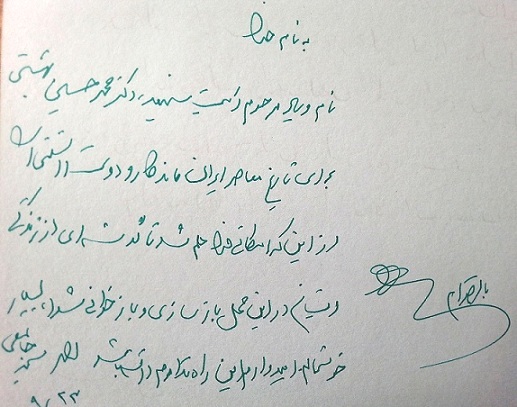 به نام خدا
نام و یاد مرحوم آیت شهید، دکتر محمد حسینی بهشتی
برای تاریخ معاصر ایران ماندگار و دوست داشتنی است
از این که امکانی فراهم شد تا گوشه ای از زندگی
ایشان در این محل بازسازی و بازخوانی شد، بسیار
خوشحالم. امیدوارم این راه تداوم داشته باشد
با احترام
۹/۲۳